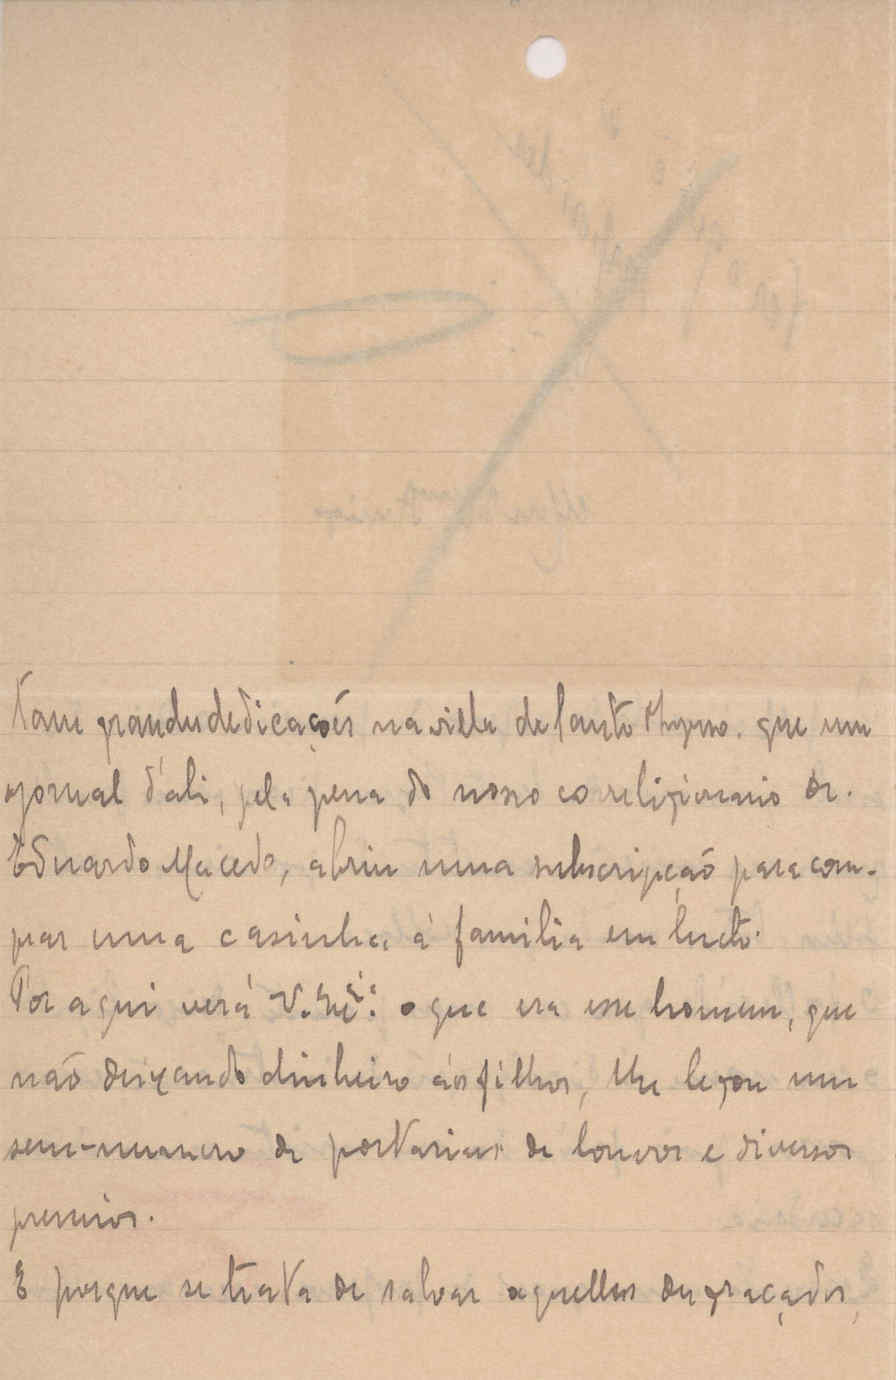 tam grandes dedicações na villa de Santo Thyrso. que um
jornal d'ali, pela pena do nosso correligionario Dr.
Eduardo Macedo, abriu uma subscripção para com-
prar uma casinha á familia em lucto.
Por aqui verá V. Exª: o que era esse homem, que
não deixando dinheiro aos filhos, lhe legou um
sem-numero de portarias de louvor e diversos
premios.
E porque se trata de salvar aquelles desgraçados,